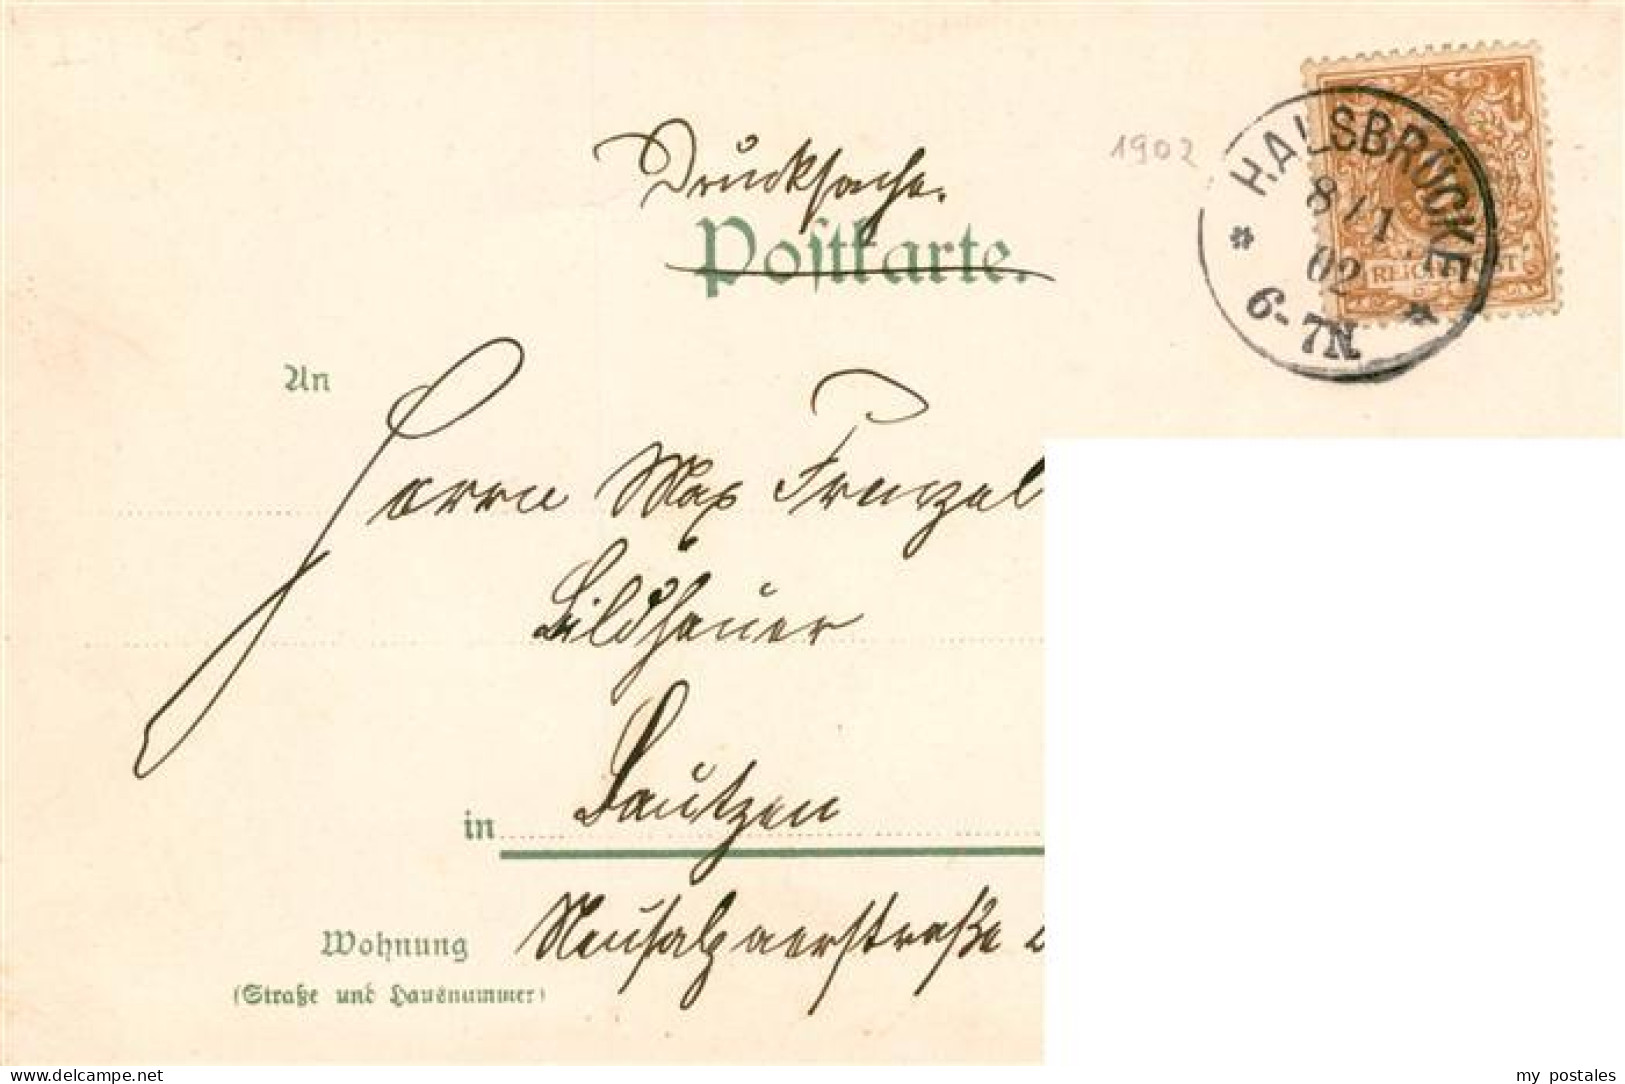 Drucksache.
Postkarte.
1902
HALSBRÜCKE
8/1
02
6-7N.
REICHSPOST
An
Herrn Max Frenzel
Bildhauer
in Bautzen
Wohnung
(Straße und Hausnummer)
delcampe.net
my_postales